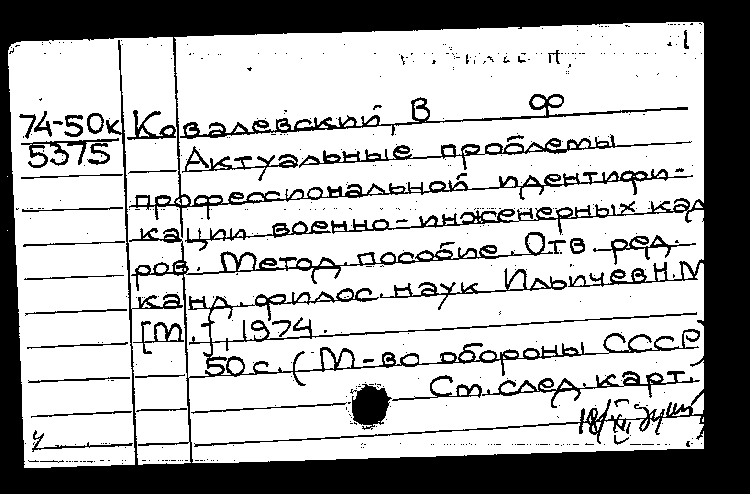 1
74-50к Ковалевский, В Ф
5375 Актуальные проблемы
профессиональной идентифи-
кации военно-инженерных кад
ров. Метод. пособие. Отв. ред.
канд. филос. наук Ильичев Н.М
[М.], 1974.
50 с. (М-во обороны СССР)
См. след. карт.
18/XII
ч